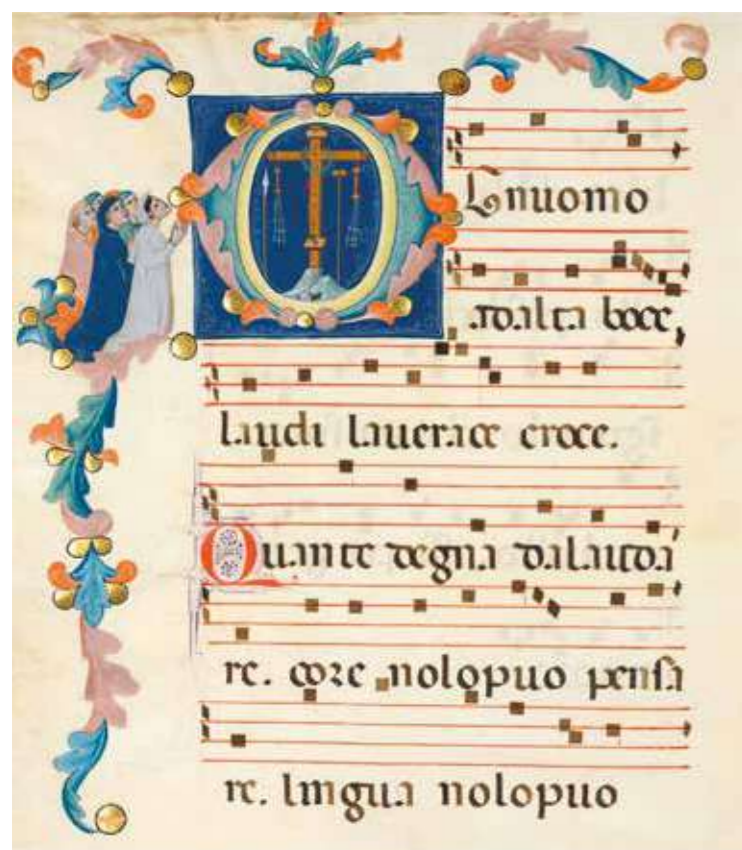 OGnuomo
adalta boce,
laudi lauerace croce.
Quante degna dalauda
re. core nolopuo pensa
re. lingua nolopuo